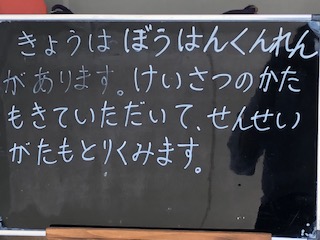 きょうは ぼうはんくんれん
があります。けいさつのかた
もきていただいて、せんせい
がたもとりくみます。